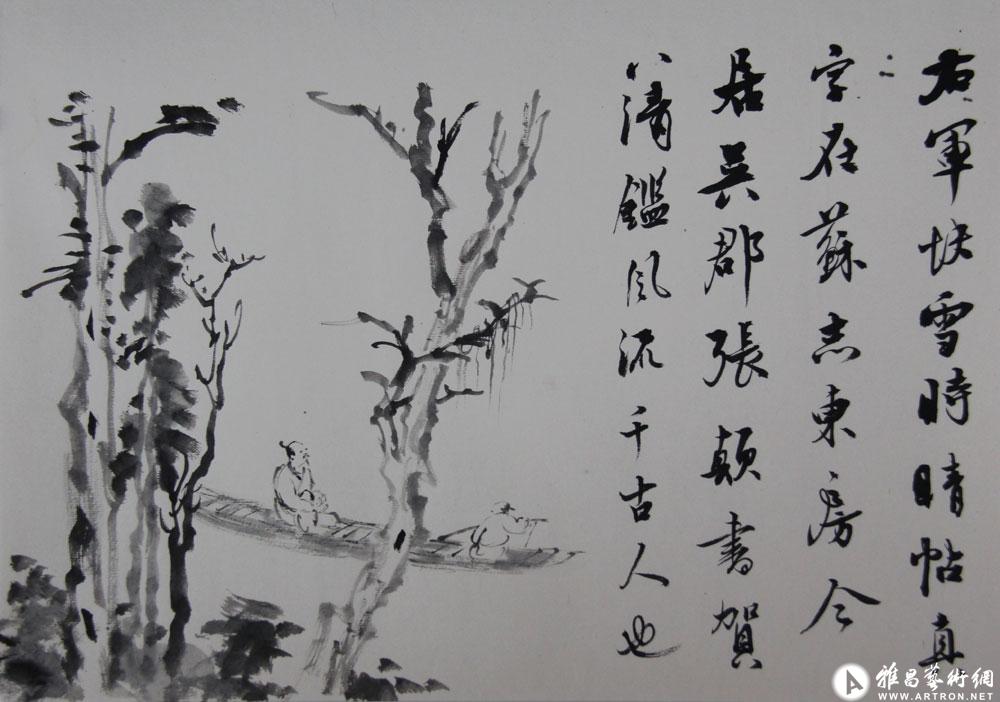 右軍快雪時晴帖真
字在蘇志東房今
居吳郡張顛書賀
八清鑑風流千古人也
雅昌藝術網
WWW.ARTRON.NET